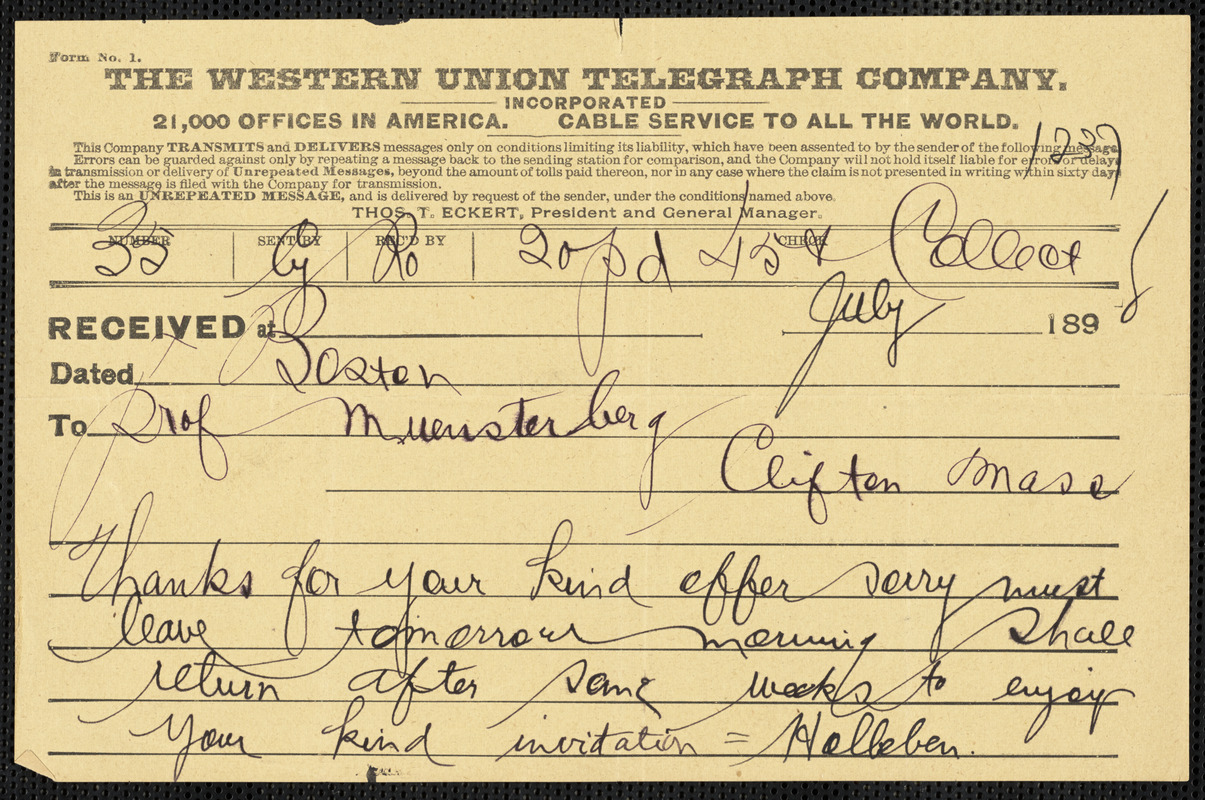 Form No. 1.
THE WESTERN UNION TELEGRAPH COMPANY.
INCORPORATED
21,000 OFFICES IN AMERICA. CABLE SERVICE TO ALL THE WORLD.
This Company TRANSMITS and DELIVERS messages only on conditions limiting its liability, which have been assented to by the sender of the following message.
Errors can be guarded against only by repeating a message back to the sending station for comparison, and the Company will not hold itself liable for errors or delays
in transmission or delivery of Unrepeated Messages, beyond the amount of tolls paid thereon, nor in any case where the claim is not presented in writing within sixty days
after the message is filed with the Company for transmission.
This is an UNREPEATED MESSAGE, and is delivered by request of the sender, under the conditions named above.
THOS. T. ECKERT, President and General Manager.
NUMBER SENT BY REC'D BY CHECK
33 20 pd 45 Collect
RECEIVED at July 189
Dated Boston
To Prof Muensterberg
Clifton Mass
Thanks for your kind offer sorry must
leave tomorrow morning Shall
return after some weeks to enjoy
your kind invitation = Holleben.